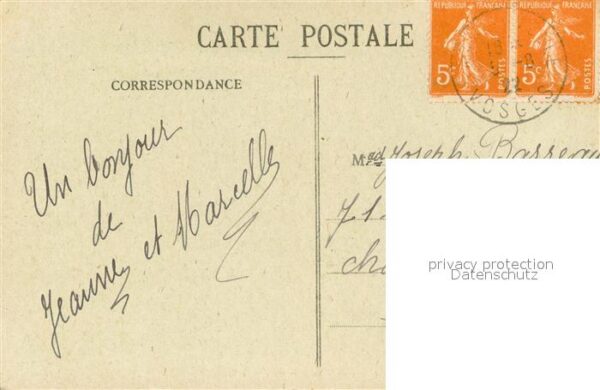 CARTE POSTALE
RÉPUBLIQUE FRANÇAISE
5c POSTES
RÉPUBLIQUE FRANÇAISE
5c POSTES
22
VOSGES
CORRESPONDANCE
Un bonjour
de
Jeanne et Marcelle
Joseph Barreau
privacy protection
Datenschutz